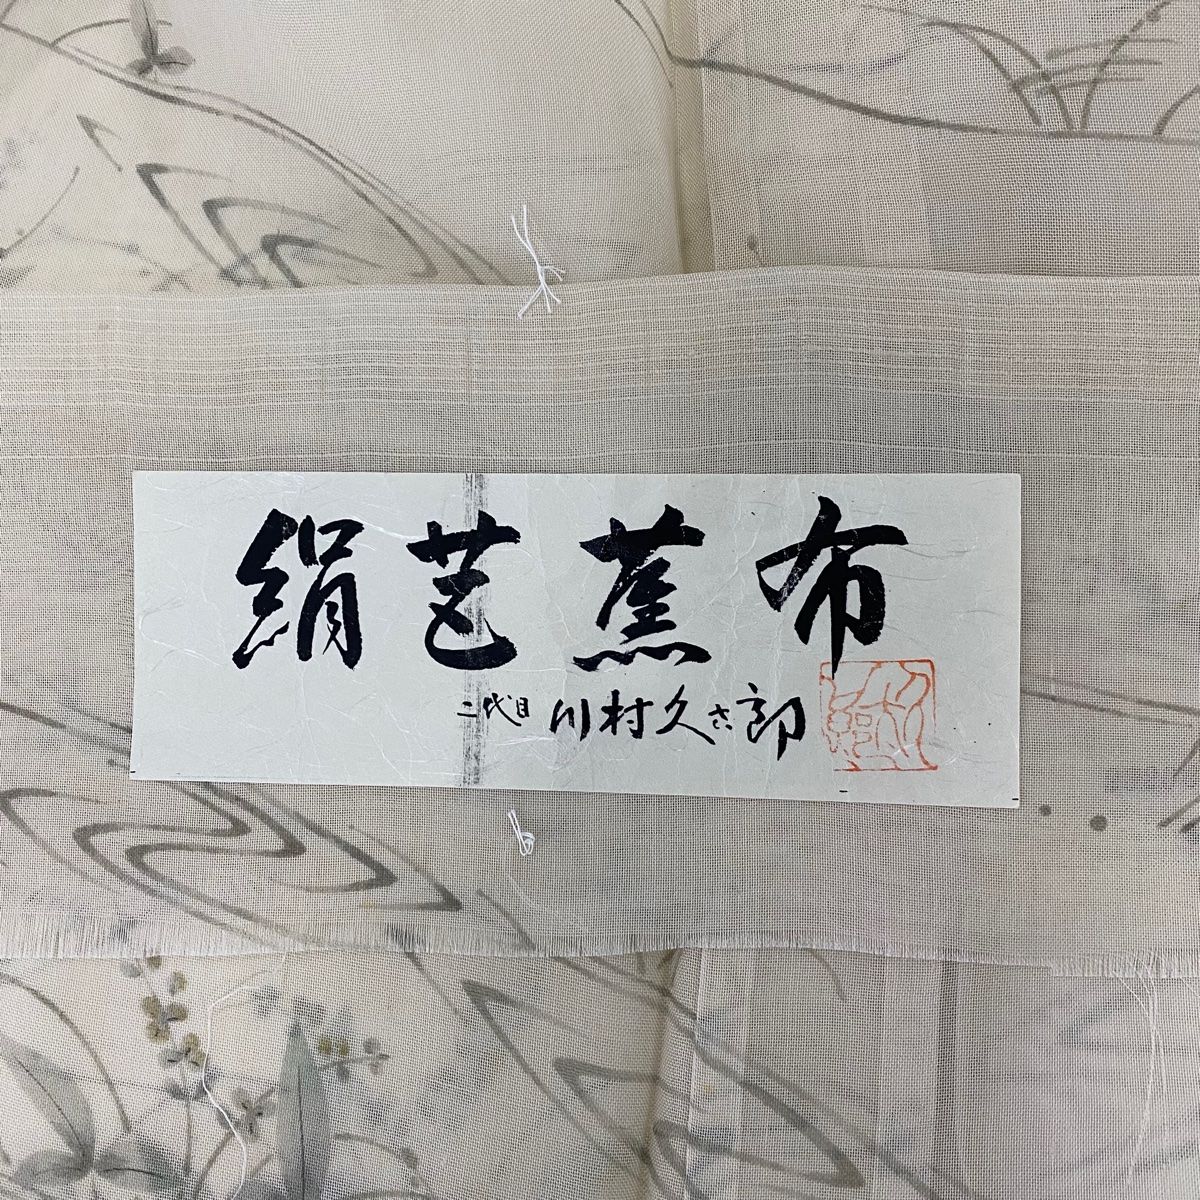 絹芭蕉布
二代目 川村久太郎